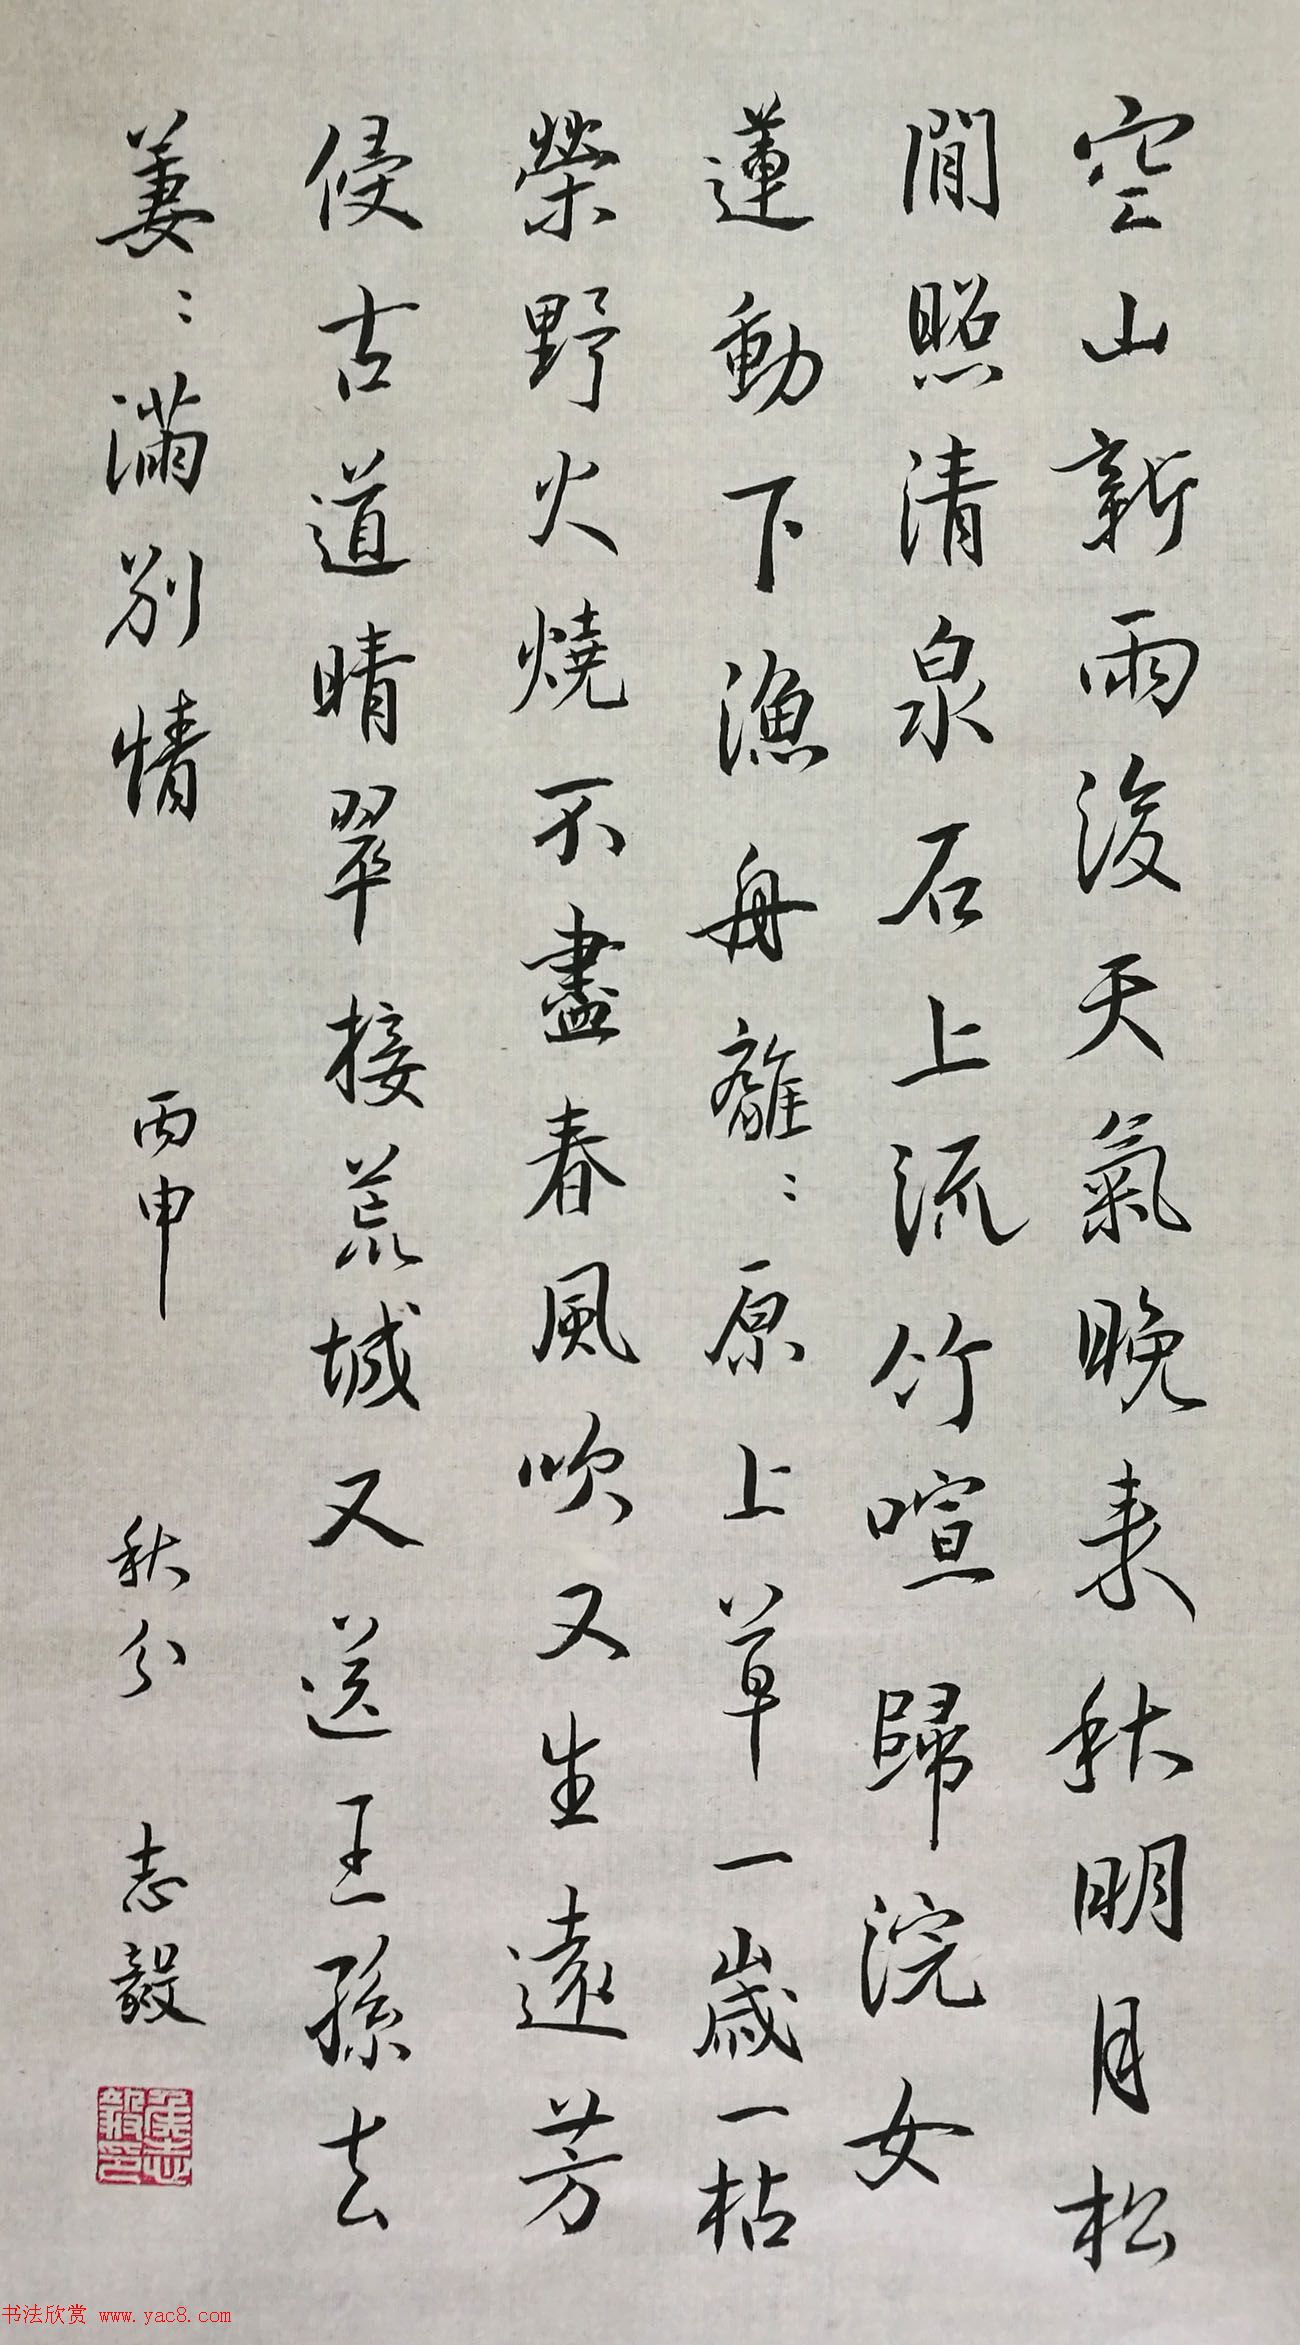 空山新雨後天氣晚来秋明月松
間照清泉石上流竹喧歸浣女
蓮動下漁舟離〻原上草一歲一枯
榮野火燒不盡春風吹又生遠芳
侵古道晴翠接荒城又送王孫去
萋〻滿別情
丙申 秋分 志毅
书法欣赏 www.yac8.com